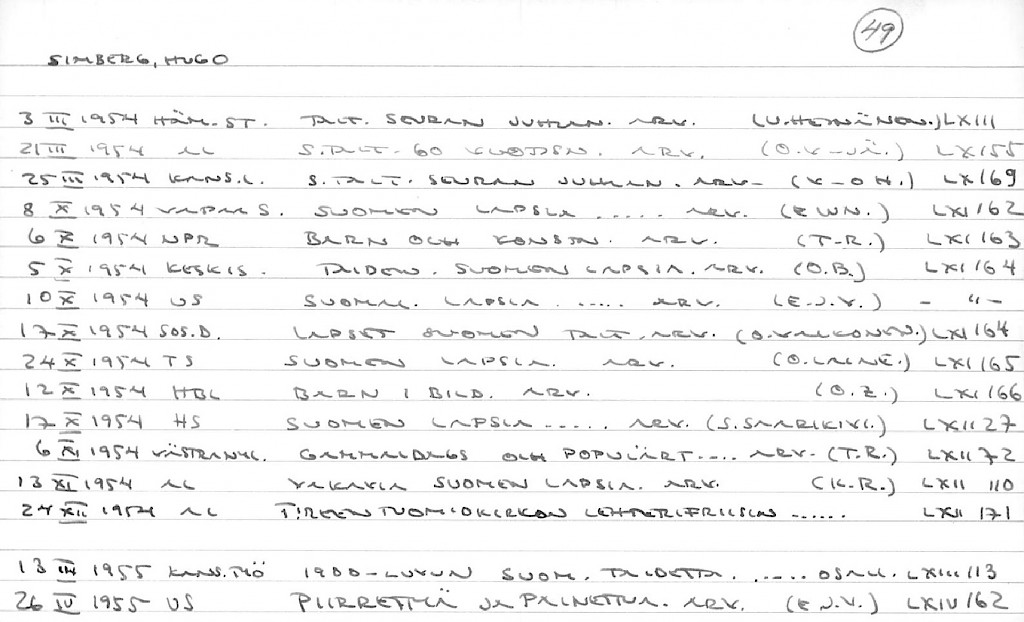 49
SIMBERG, HUGO
3 III 1954 HÄM. ST. TAIT. SEURAN JUHLAN. ARV. (U. HEINÄNEN.) LXIII
21 III 1954 AL S. TAIT. 60 VUOTISN. ARV. (O. V-JÄ.) LX 155
25 III 1954 KANS. L. S. TAIT. SEURAN JUHLAN. ARV- (V-O H.) LX 169
8 X 1954 VAPAA S. SUOMEN LAPSIA ..... ARV. (E WN.) LXI 162
6 X 1954 NPR BARN OCH KONSTN. ARV. (T-R.) LXI 163
5 X 1954 KESKIS. TAIDEN. SUOMEN LAPSIA. ARV. (O.B.) LXI 164
10 X 1954 US SUOMAL. LAPSIA ..... ARV. (E.J.V.) - " -
17 X 1954 SOS.D. LAPSET SUOMEN TAIT. ARV. (O. VALKONEN.) LXI 164
24 X 1954 TS SUOMEN LAPSIA. ARV. (O. LAINE.) LXI 165
12 X 1954 HBL BARN I BILD. ARV. (O.Z.) LXI 166
17 X 1954 HS SUOMEN LAPSIA ..... ARV. (S. SAARIKIVI.) LXII 27
6 XI 1954 VÄSTRA NYL. GAMMALDAGS OCH POPULÄRT .... ARV. (T.R.) LXII 72
13 XI 1954 AL VAKAVIA SUOMEN LAPSIA. ARV. (K.R.) LXII 110
24 XII 1954 AL T:REEN TUOMIOKIRKON LEHTERIFRIISIN ...... LXII 171
13 III 1955 KANS. TYÖ 1900-LUVUN SUOM. TAIDETTA. ..... OSALL. LXIII 113
26 IV 1955 US PIIRRETTYÄ JA PAINETTUA. ARV. (E J.V.) LXIV 162